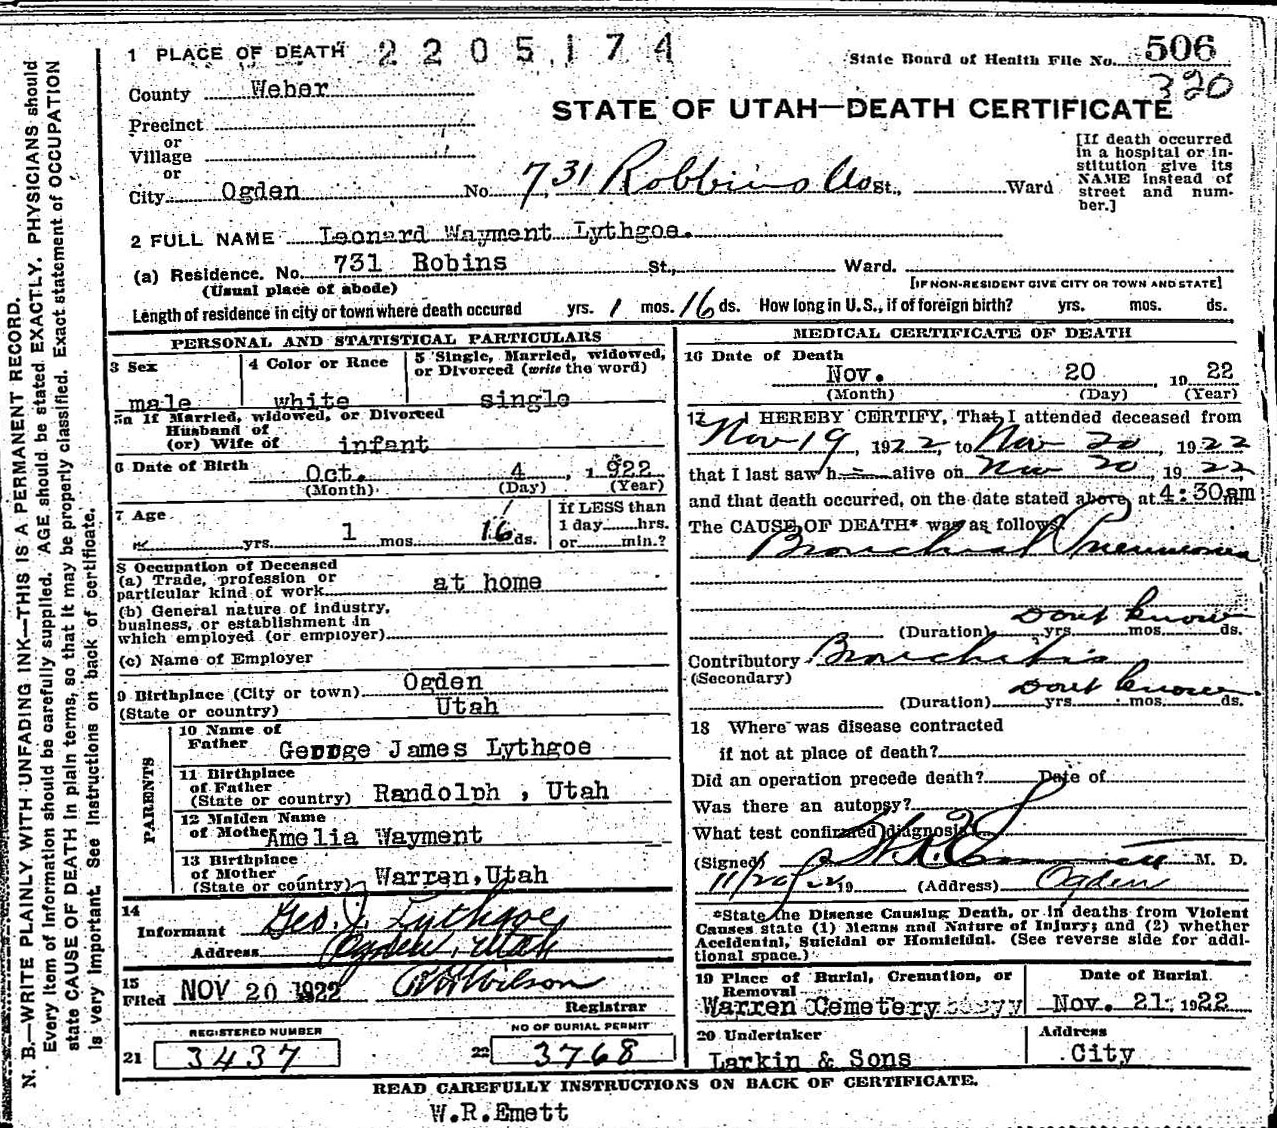 1 PLACE OF DEATH 2 2 0 5 1 7 4
State Board of Health File No. 506
320
County Weber
STATE OF UTAH—DEATH CERTIFICATE
Precinct
or
Village
or
City Ogden No. 731 Robbins Ave St., Ward
[If death occurred
in a hospital or in-
stitution give its
NAME instead of
street and num-
ber.]
2 FULL NAME Leonard Wayment Lythgoe.
(a) Residence. No. 731 Robins St., Ward.
(Usual place of abode) [IF NON-RESIDENT GIVE CITY OR TOWN AND STATE]
Length of residence in city or town where death occured yrs. 1 mos. 16 ds. How long in U.S., if of foreign birth? yrs. mos. ds.
PERSONAL AND STATISTICAL PARTICULARS
3 Sex
male
4 Color or Race
white
5 Single, Married, widowed,
or Divorced (write the word)
single
5a If Married, widowed, or Divorced
Husband of
(or) Wife of infant
6 Date of Birth
Oct. 4, 1922
(Month) (Day) (Year)
7 Age
yrs. 1 mos. 16 ds.
If LESS than
1 day hrs.
or min.?
8 Occupation of Deceased
(a) Trade, profession or
particular kind of work at home
(b) General nature of industry,
business, or establishment in
which employed (or employer)
(c) Name of Employer
9 Birthplace (City or town) Ogden
(State or country) Utah
PARENTS
10 Name of
Father George James Lythgoe
11 Birthplace
of Father
(State or country) Randolph, Utah
12 Maiden Name
of Mother Amelia Wayment
13 Birthplace
of Mother
(State or country) Warren, Utah
14
Informant Geo. J. Lythgoe
Address Ogden, Utah
15
Filed NOV 20 1922 Wilson
Registrar
REGISTERED NUMBER
21 3437
NO OF BURIAL PERMIT
22 3768
MEDICAL CERTIFICATE OF DEATH
16 Date of Death
Nov. 20, 1922
(Month) (Day) (Year)
17 I HEREBY CERTIFY, That I attended deceased from
Nov 19, 1922, to Nov 20, 1922
that I last saw h alive on Nov 20, 1922,
and that death occurred, on the date stated above, at 4:30am
The CAUSE OF DEATH* was as follows:
Bronchial Pneumonia
Dont know
(Duration) yrs. mos. ds.
Contributory Bronchitis
(Secondary)
Dont know
(Duration) yrs. mos. ds.
18 Where was disease contracted
if not at place of death?
Did an operation precede death? Date of
Was there an autopsy?
What test confirmed diagnosis?
(Signed) M. D.
11/20/22 19 (Address) Ogden
*State the Disease Causing Death, or in deaths from Violent
Causes state (1) Means and Nature of Injury; and (2) whether
Accidental, Suicidal or Homicidal. (See reverse side for addi-
tional space.)
19 Place of Burial, Cremation, or
Removal
Warren Cemetery
Date of Burial
Nov. 21, 1922
20 Undertaker
Larkin & Sons
Address
City
READ CAREFULLY INSTRUCTIONS ON BACK OF CERTIFICATE.
W.R.Emett
N. B.—WRITE PLAINLY WITH UNFADING INK—THIS IS A PERMANENT RECORD.
Every item of information should be carefully supplied. AGE should be stated EXACTLY. PHYSICIANS should
state CAUSE OF DEATH in plain terms, so that it may be properly classified. Exact statement of OCCUPATION
is very important. See instructions on back of certificate.